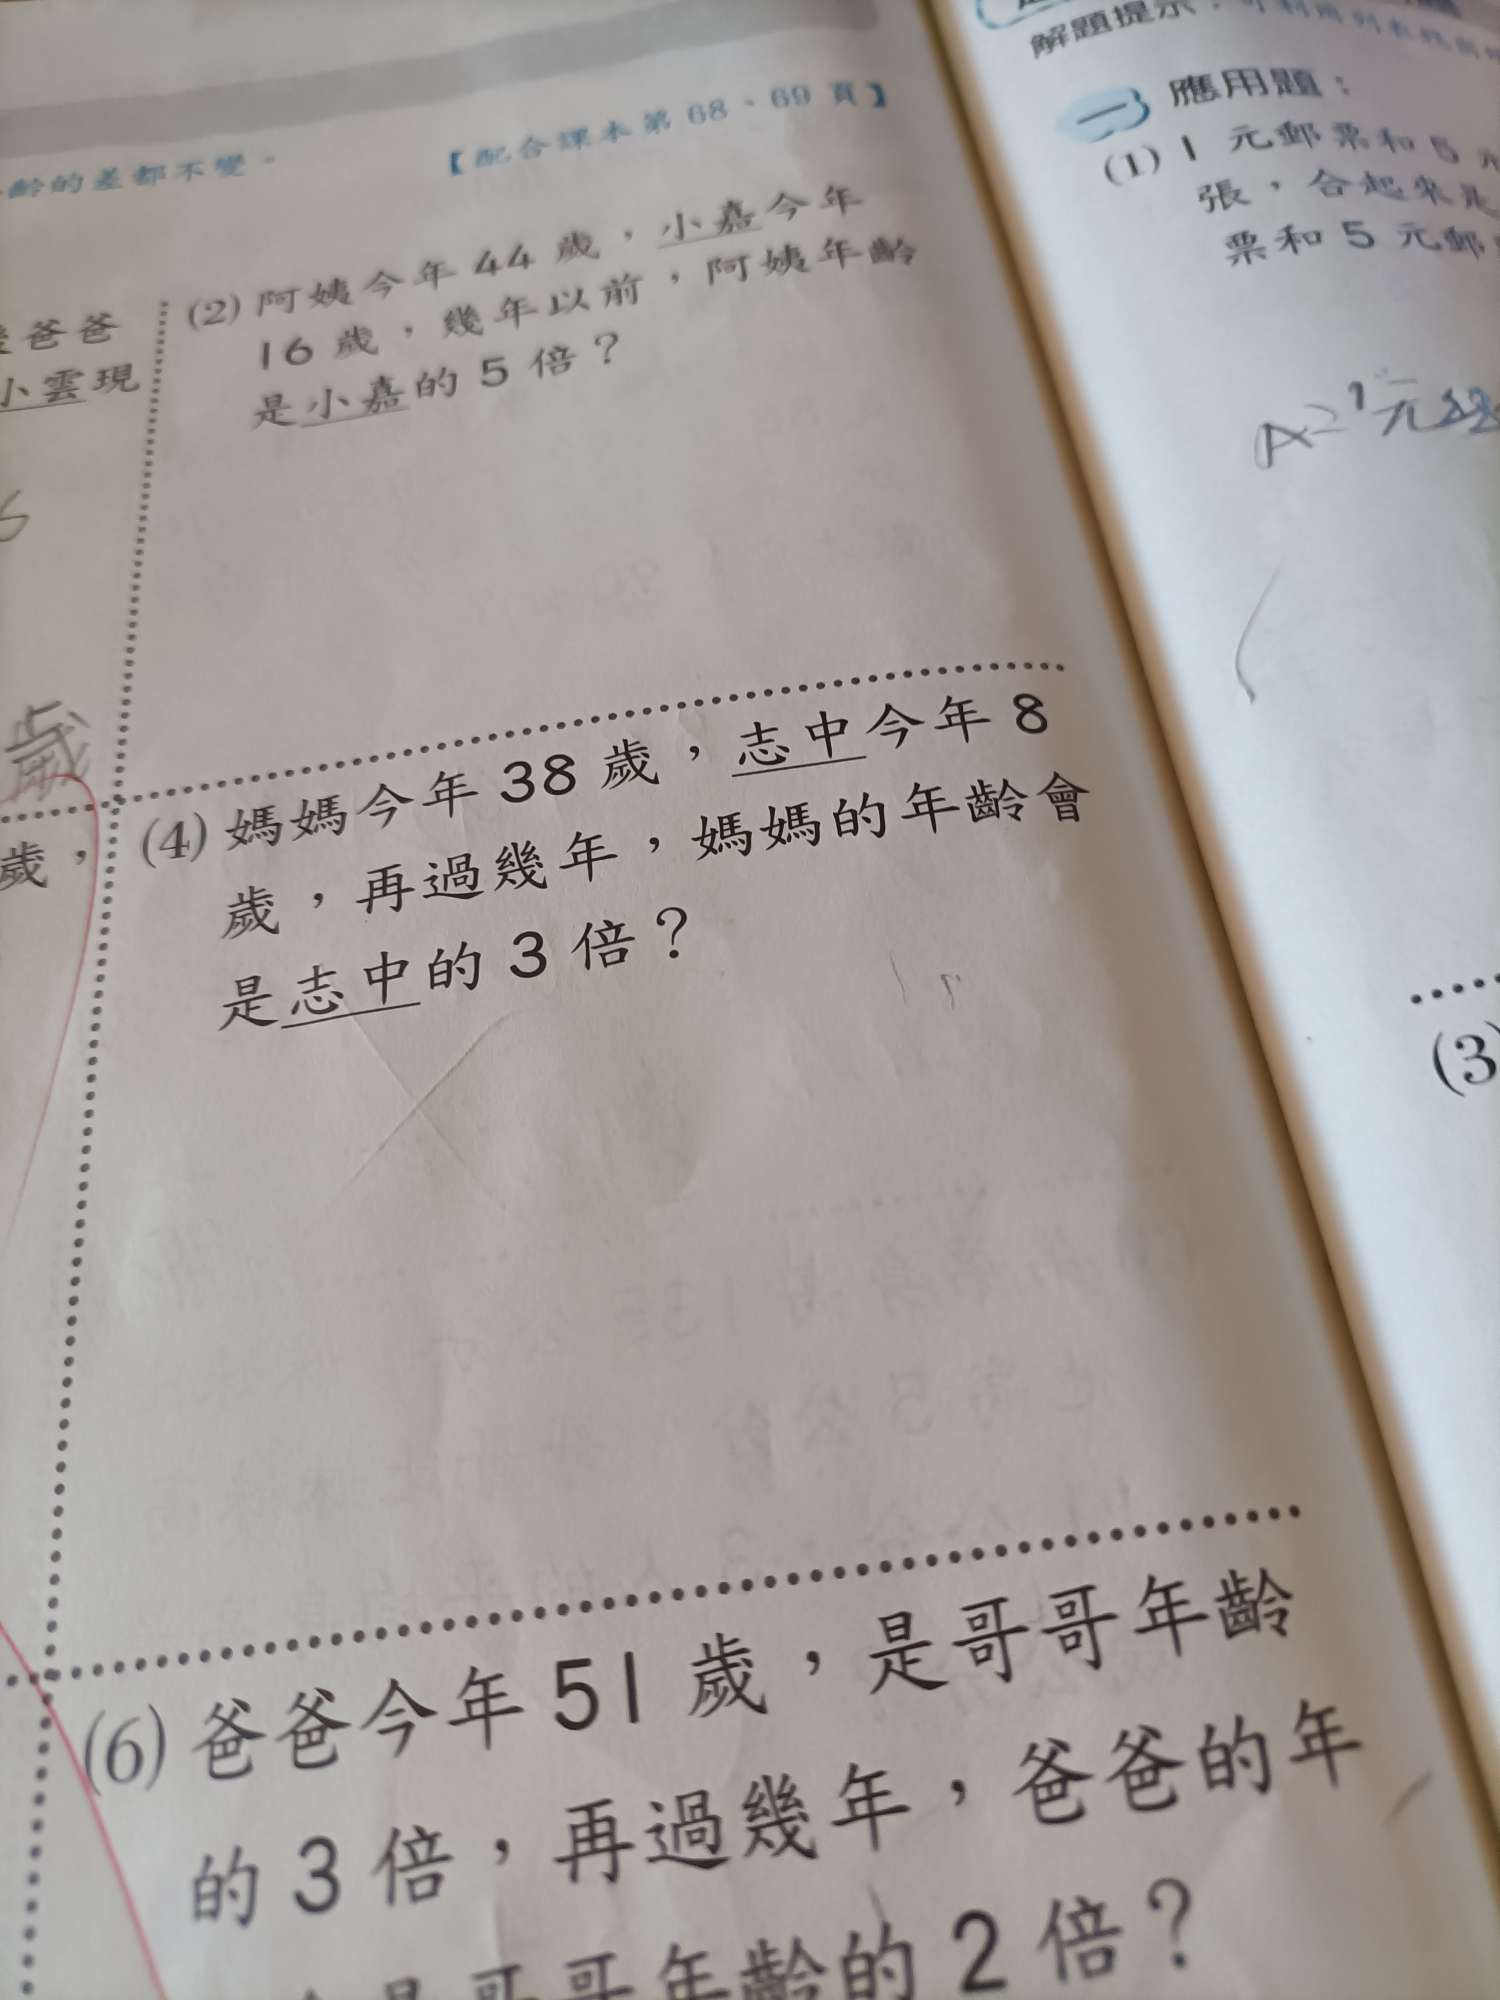 齡的差都不變。
【配合課本第 68、69 頁】
爸爸
小雲現
歲
歲，
(2) 阿姨今年 44 歲，小嘉今年
16 歲，幾年以前，阿姨年齡
是小嘉的 5 倍？
(4) 媽媽今年 38 歲，志中今年 8
歲，再過幾年，媽媽的年齡會
是志中的 3 倍？
(6) 爸爸今年 51 歲，是哥哥年齡
的 3 倍，再過幾年，爸爸的年
是哥哥年齡的 2 倍？
解題提示：
一 應用題：
(1) 1 元郵票和 5
張，合起來是
票和 5 元郵
1元
(3)